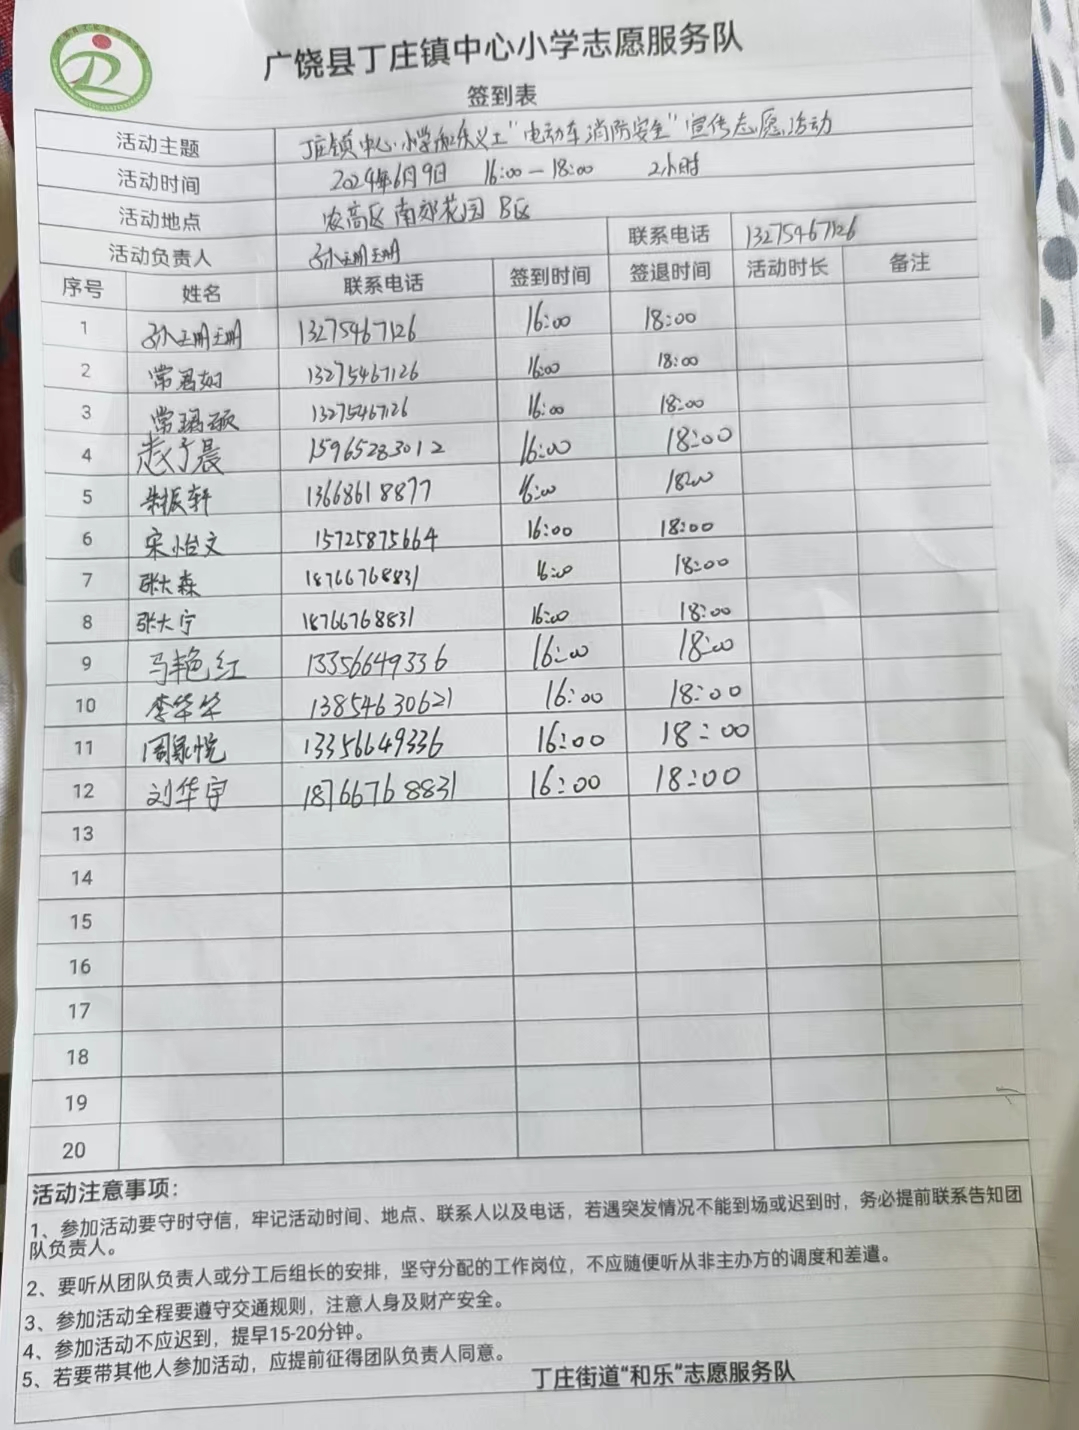 广饶县丁庄镇中心小学志愿服务队
签到表
活动主题 丁庄镇中心小学和乐义工“电动车消防安全”宣传志愿活动
活动时间 2024年6月9日 16:00—18:00 2小时
活动地点 农高区南郊花园B区
活动负责人 孙珊珊 联系电话 13275467126
序号 姓名 联系电话 签到时间 签退时间 活动时长 备注
1 孙珊珊 13275467126 16:00 18:00
2 常君如 13275467126 16:00 18:00
3 常珺硕 13275467126 16:00 18:00
4 赵子晨 15965283012 16:00 18:00
5 朱振轩 13668618877 16:00 18:00
6 宋怡文 15725875664 16:00 18:00
7 张大森 18766768831 16:00 18:00
8 张大宁 18766768831 16:00 18:00
9 马艳红 13356649336 16:00 18:00
10 李华华 13854630621 16:00 18:00
11 周家悦 13356649336 16:00 18:00
12 刘华宇 18766768831 16:00 18:00
13
14
15
16
17
18
19
20
活动注意事项：
1、参加活动要守时守信，牢记活动时间、地点、联系人以及电话，若遇突发情况不能到场或迟到时，务必提前联系告知团
队负责人。
2、要听从团队负责人或分工后组长的安排，坚守分配的工作岗位，不应随便听从非主办方的调度和差遣。
3、参加活动全程要遵守交通规则，注意人身及财产安全。
4、参加活动不应迟到，提早15-20分钟。
5、若要带其他人参加活动，应提前征得团队负责人同意。
丁庄街道“和乐”志愿服务队